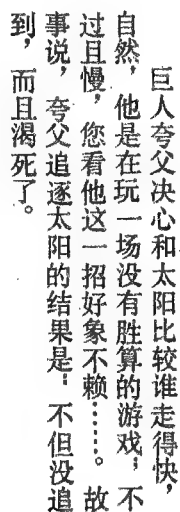 巨人夸父决心和太阳比较谁走得快，
自然，他是在玩一场没有胜算的游戏；不
过且慢，您看他这一招好象不赖……。故
事说，夸父追逐太阳的结果是：不但没追
到，而且渴死了。